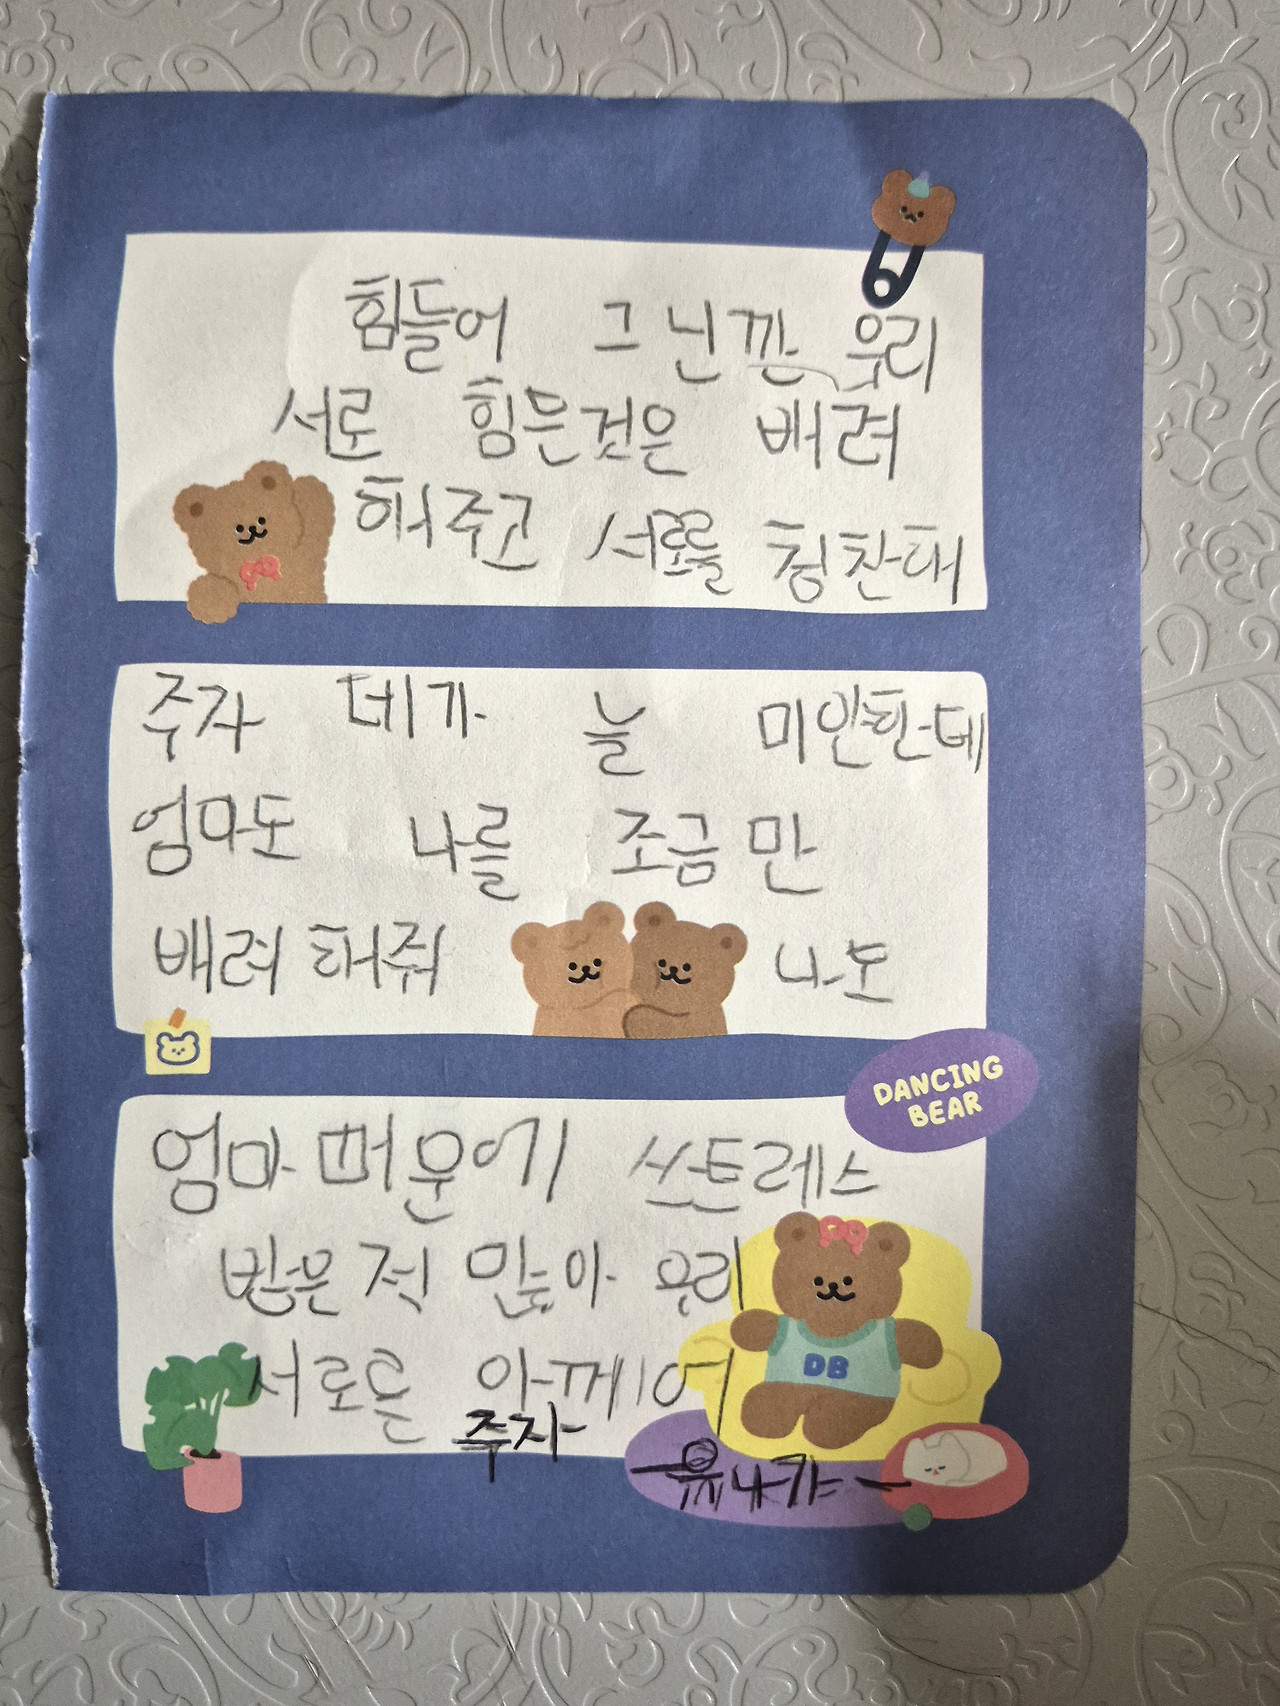 힘들어 그닌깐 우리
서로 힘든것은 배려
해주고 서로를 칭찬해
주자 데가 늘 미안한데
엄마도 나를 조금만
배려해줘 나도
DANCING
BEAR
엄마 때문에 쓰트레스
받은적 많아 우리
서로를 아께어
주자
DB
유나가